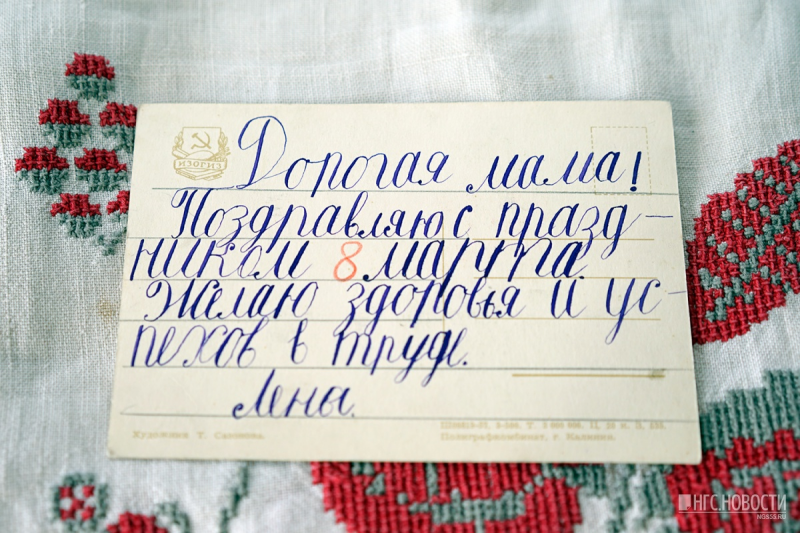 ИЗОГИЗ
Дорогая мама!
Поздравляю с празд-
ником 8 марта.
Желаю здоровья и ус-
пехов в труде.
Лены.
Художник Т. Сазонова.
Полиграфкомбинат, г. Калинин.
НГС.НОВОСТИ
NGS55.RU